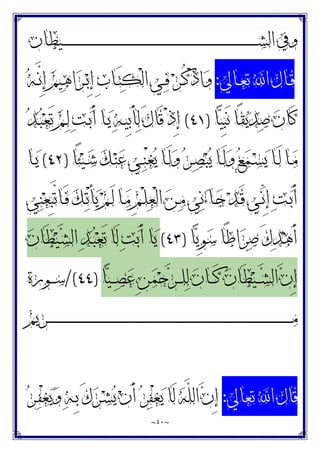 وفي الشيطان
قال الله تعالى: وَاذْكُرْ فِي الْكِتَابِ إِبْرَاهِيمَ إِنَّهُ
كَانَ صِدِّيقًا نَّبِيًّا (٤١) إِذْ قَالَ لِأَبِيهِ يَا أَبَتِ لِمَ تَعْبُدُ
مَا لَا يَسْمَعُ وَلَا يُبْصِرُ وَلَا يُغْنِي عَنْكَ شَيْئًا (٤٢) يَا
أَبَتِ إِنِّي قَدْ جَاءَنِي مِنَ الْعِلْمِ مَا لَمْ يَأْتِكَ فَاتَّبِعْنِي
أَهْدِكَ صِرَاطًا سَوِيًّا (٤٣) يَا أَبَتِ لَا تَعْبُدِ الشَّيْطَانَ
إِنَّ الشَّيْطَانَ كَانَ لِلرَّحْمَنِ عَصِيًّا (٤٤)/سورة
مريم
قال الله تعالى: إِنَّ اللَّهَ لَا يَغْفِرُ أَنْ يُشْرَكَ بِهِ وَيَغْفِرُ
~٤٠~